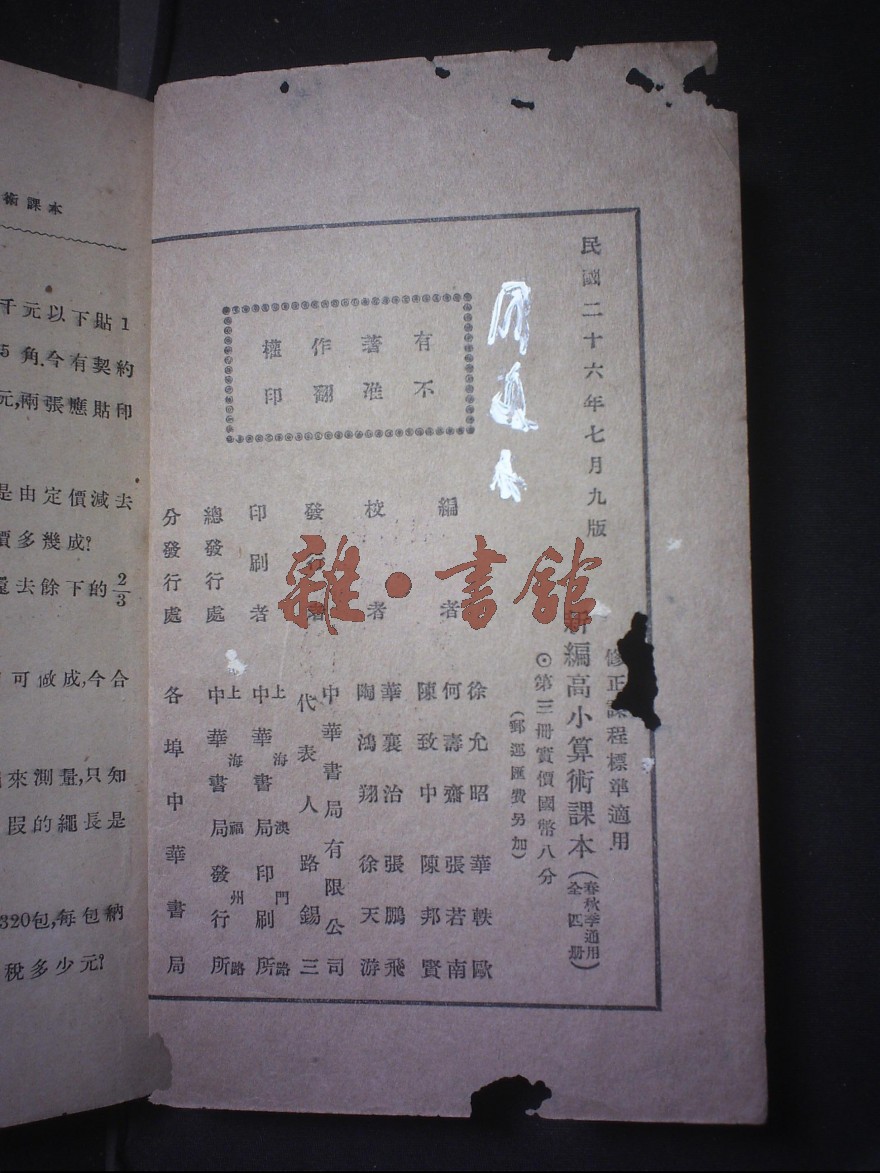 民國二十六年七月九版
修正課程標準適用
新編高小算術課本（春秋季通用 全四册）
⊙第三冊實價國幣八分
（郵運匯費另加）
有著作權
不准翻印
編者
徐允昭 華軼歐
何壽齋 張若南
陳致中 陳邦賢
校者
華襄治 張鵬飛
陶鴻翔 徐天游
發行者
中華書局有限公司
代表人 路錫三
印刷者
上海澳門路
中華書局印刷所
總發行處
上海福州路
中華書局發行所
分發行處
各埠中華書局
雜·書館
術課本
千元以下貼1
5角.今有契約
元,兩張應貼印
是由定價減去
價多幾成?
還去餘下的2/3
可做成,今合
來測量,只知
段的繩長是
320包,每包納
稅多少元?